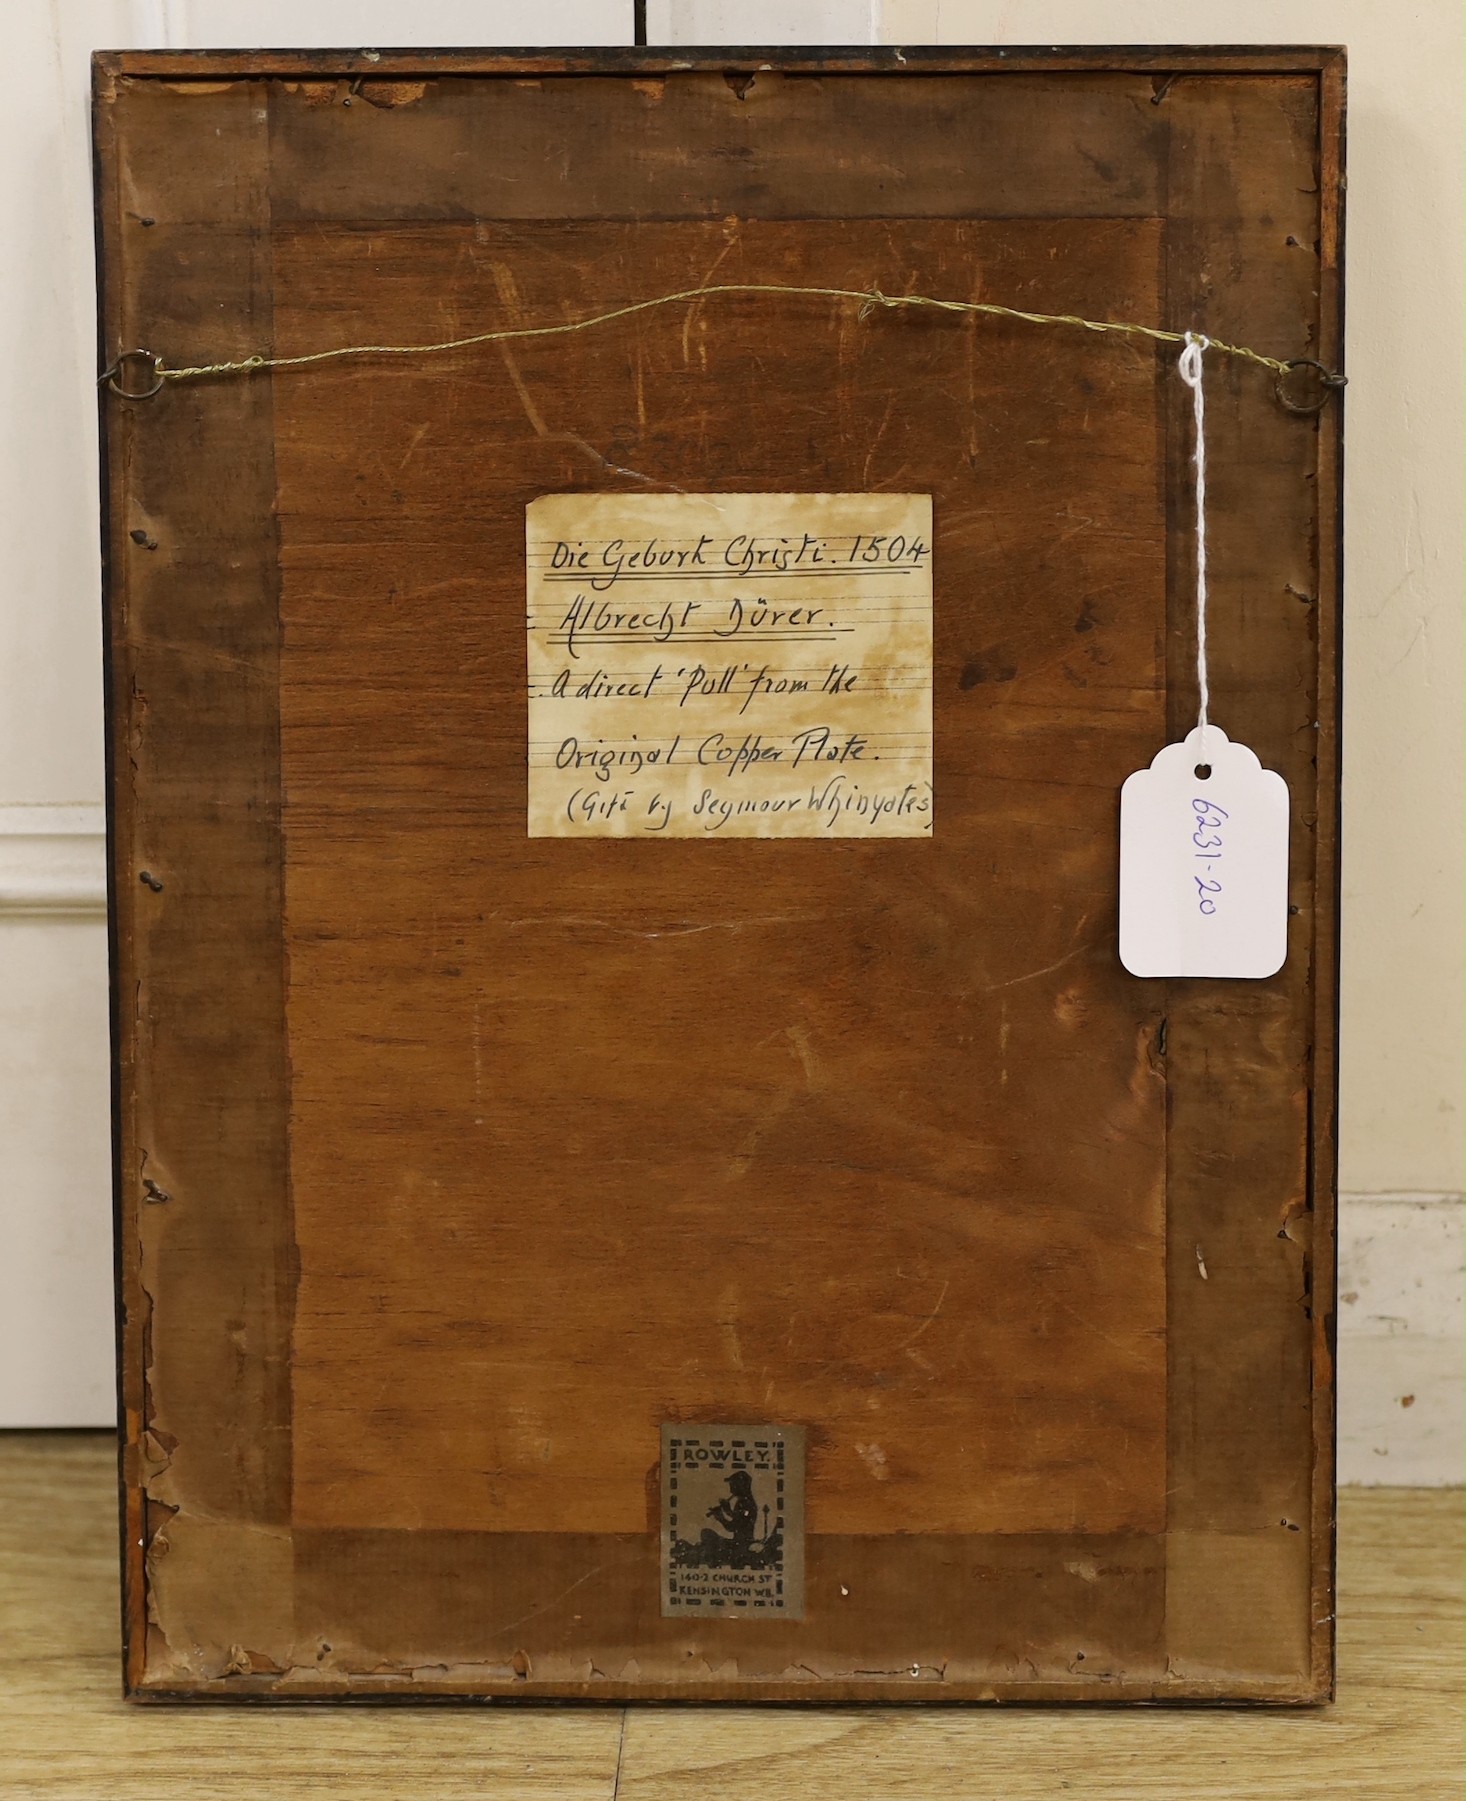 Die Geburt Christi. 1504
Albrecht Dürer.
A direct 'Pull' from the
Original Copper Plate.
(Gift by Seymour Whinyates)
6231-20
ROWLEY.
140-2 CHURCH ST
KENSINGTON W8.